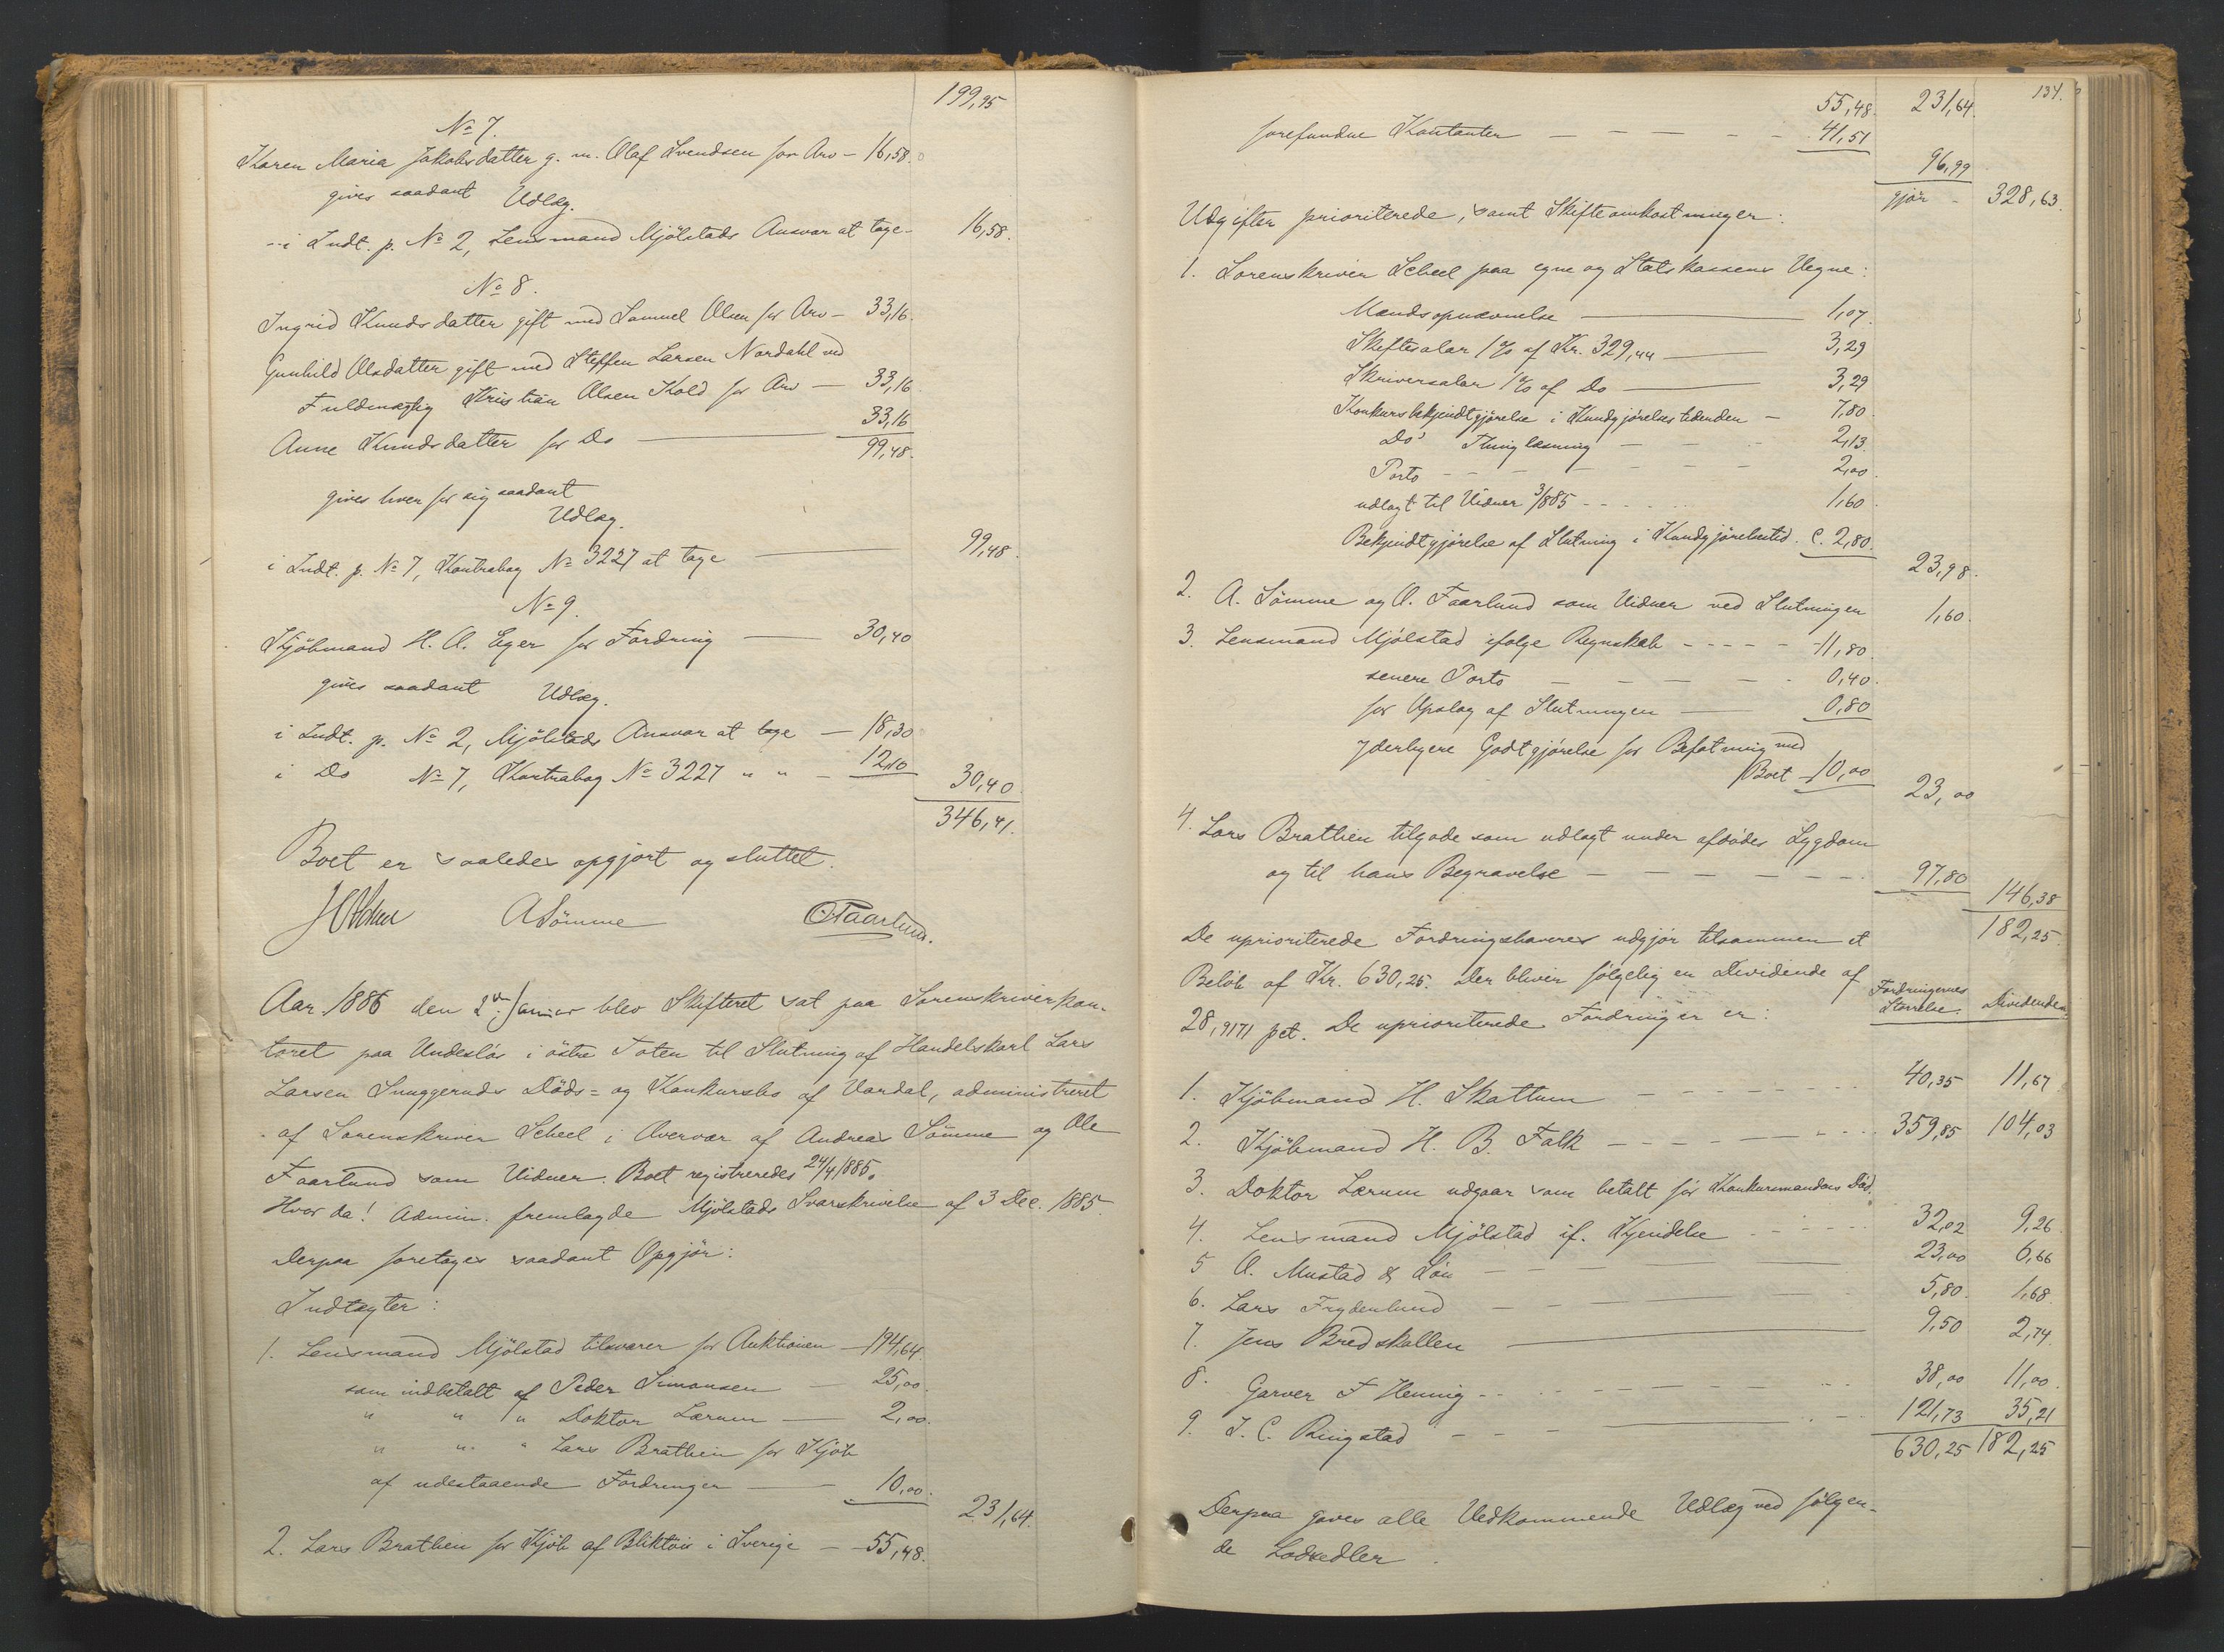 199,95
No 7.
Karen Maria Jakobsdatter g. m. Olaf Svendsen for Arv – 16,58.
gives saadant Udlæg.
i Indt. p. No 2, Lensmand Mjölstads Ansvar at tage – 16,58.
No 8.
Ingrid Knudsdatter gift med Samuel Olsen for Arv – 33,16.
Gunhild Olsdatter gift med Steffen Larsen Nordahl ved
Fuldmægtig Kristian Olsen Kold for Arv — 33,16.
Anne Knudsdatter for Do — 33,16
99,48.
gives hver for sig saadant
Udlæg.
i Indt. p. No 7, Kontrabog No 3227 at tage — 99,48.
No 9.
Kjöbmand H. A. Eger for Fordring — 30,40
gives saadant Udlæg.
i Indt. p. No 2, Mjölstads Ansvar at tage — 18,30
i Do No 7, Kontrabog No 3227 " " – 12,10
30,40.
346,41.
Boet er saaledes opgjort og sluttet.
ASömme
OFaarlund.
Aar 1886 den 2den Januar blev Skifteret sat paa Sorenskriverkon-
toret paa Undeslös i östre Toten til Slutning af Handelskarl Lars
Larsen Snuggeruds Döds= og Konkursbo af Vardal, administreret
af Sorenskriver Scheel i Overvær af Andreas Sömme og Ole
Faarlund som Vidner. Boet registreredes 24/4 1885.
Hvor da! Admin. fremlagde Mjölstads Svarskrivelse af 3 Dec. 1885.
Derpaa foretages saadant Opgjör:
Indtægter:
1. Lensmand Mjölstad tilsvarer for Auktionen — 194,64.
som indbetalt af Peder Simonsen — 25,00.
" " " Doktor Lærum — 2,00.
" " " Lars Brathen for Kjöb
af udestaaende Fordringer — 10,00.
231,64.
2. Lars Brathen for Kjöb af Bliktöi i Sverige — 55,48.
134.
55,48. 231,64.
forefundne Kontanter — 41,51
96,99
gjör – 328,63.
Udgifter prioriterede, samt Skifteomkostninger:
1. Sorenskriver Scheel paa egne og Statskassens Vegne:
Mændsopnævnelse — 1,07.
Skiftesalær 1% af Kr. 329,44 — 3,29
Skriversalær 1% af Do — 3,29
Konkursbekjendtgjörelse i Kundgjörelsestidenden – 7,80.
Do's Thinglæsning — 2,13.
Porto — 2,00.
udlagt til Vidner 3/885 — 1,60.
Bekjendtgjörelse af Slutning i Kundgjörelsestid. C. 2,80.
23,98.
2. A. Sömme og O. Faarlund som Vidner ved Slutningen 1,60.
3. Lensmand Mjölstad ifölge Regnskab — 11,80.
senere Porto — 0,40.
for Opslag af Slutningen — 0,80
yderligere Godtgjörelse for Befatning med
Boet — 10,00
23,00
4. Lars Brathen tilgode som udlagt under afdödes Sygdom
og til hans Begravelse — 97,80
146,38
182,25.
De uprioriterede Fordringshaveres udgjör tilsammen et
Belöb af Kr. 630,25. Der bliver fölgelig en Dividende af
28,9171 pct. De uprioriterede Fordringer er:
Fordringernes Störrelse. Dividenden.
1. Kjöbmand H. Skattum — 40,35 11,67
2. Kjöbmand H. B. Falk — 359,85 104,03
3. Doktor Lærum udgaar som betalt för Konkursmandens Död.
4. Lensmand Mjölstad if. Kjendelse — 32,02 9,26.
5 O. Mustad & Sön — 23,00 6,66
6. Lars Frydenlund — 5,80. 1,68.
7. Jens Bredskallen — 9,50 2,74
8. Garver F Hennig — 38,00 11,00.
9. J. C. Ringstad — 121,73 35,21
630,25 182,25
Derpaa gaves alle Vedkommende Udlæg ved fölgen-
de Lodsedler.